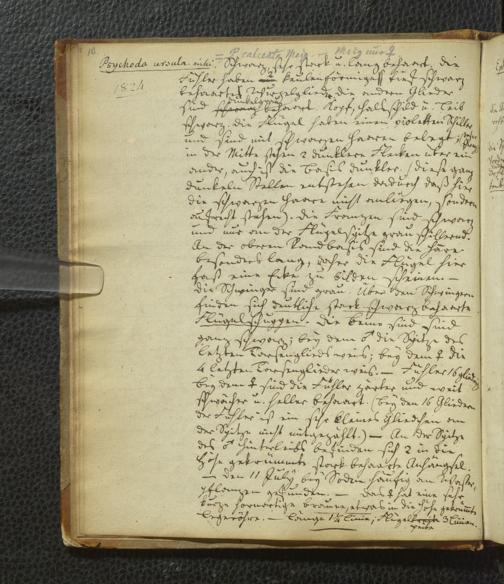 10. = P. calceata Meig. — Meig nur ♀
Psychoda ursula mihi. Schwarz, sehr stark u. lang behaart, die
1824
Fühler haben 2 keulenförmige schwarz
behaarte Wurzelglieder die andern Glieder
sind dunkelgrau behaart Kopf, Halsschild u. Leib
schwarz, die Flügel haben einen violetten Schiller
und sind mit schwarzen Haaren belegt;
in der Mitte stehen 2 dunklere Flecken über ein
ander, auch ist die Basis dunkler. (diese ganz
dunkeln Stellen entstehen dadurch daß hier
die schwarzen Haare nicht anliegen, sondern
aufrecht stehen). die Franzen sind schwarz
und nur an der Flügelspitze grau schillernd.
An der oberen Randbasis sind die Haare
besonders lang, daher die Flügel hier
fast eine Ecke zu bilden scheinen —
die Schwinger sind grau. Über den Schwingern
finden sich deutliche stark schwarz behaarte
Flügelschuppen. Die Beine sind
ganz schwarz; bey dem ♂ die Spitze des
letzten Tarsenglieds weis; bey dem ♀ die
4 letzten Tarsenglieder weis. — Fühler 16gliedrig
bey dem ♀ sind die Fühler zarter und weit
schwächer u. heller behaart. (bey den 16 Gliedern
der Fühler ist ein sehr kleines Gliedchen an
der Spitze nicht mitgezählt.) — An der Spitze
des ♂ Hinterleibs befinden sich 2 in die
Höhe gekrümmte stark behaarte Anhängsel.
— den 11 July bey Soden häufig an Wasser-
pflanzen gefunden. — das ♀ hat eine sehr
kurze hornartige braune, etwas in die Höhe gekrümmte
Legeröhre. — Länge 1¼ Linie; Flügel 3 Linien.